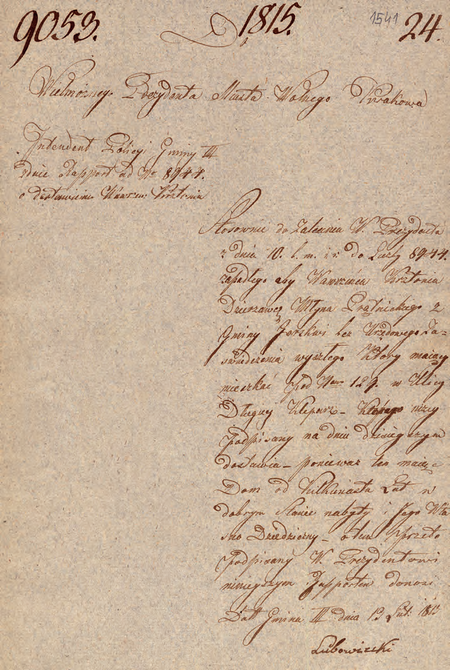 9053. 1815. 1541 24.
Wielmożnego Prezydenta Miasta Wolnego Krakowa
Intendent Policyi Gminy III
zdaie Rapport ad Nr 8944.
o dostawienie
Stosownie do Zalecenia W. Prezydenta
z dnia 10. b. m. i r. do Liczby 8944.
zapadłego aby Wawrzeńca
Dzierzawcę Młyna z
Gminy bez Urzędowego Za-
świadczenia wyszłego który maiący
mieszkać pod Nrem 129. w Ulicy
Długiey Kleparz - Którego niżey
Podpisany na dniu dzisieyszym
dostawia - ponieważ ten maiący
Dom od Kilkunastu Lat w
dobrym Stanie nabyty i Jego Wła-
sno Dziedziczny - o tem przeto
Podpisany W. Prezydentowi
ninieyszym Rapportem donosi
Dat Gmina III dnia 13
Lubowiecki